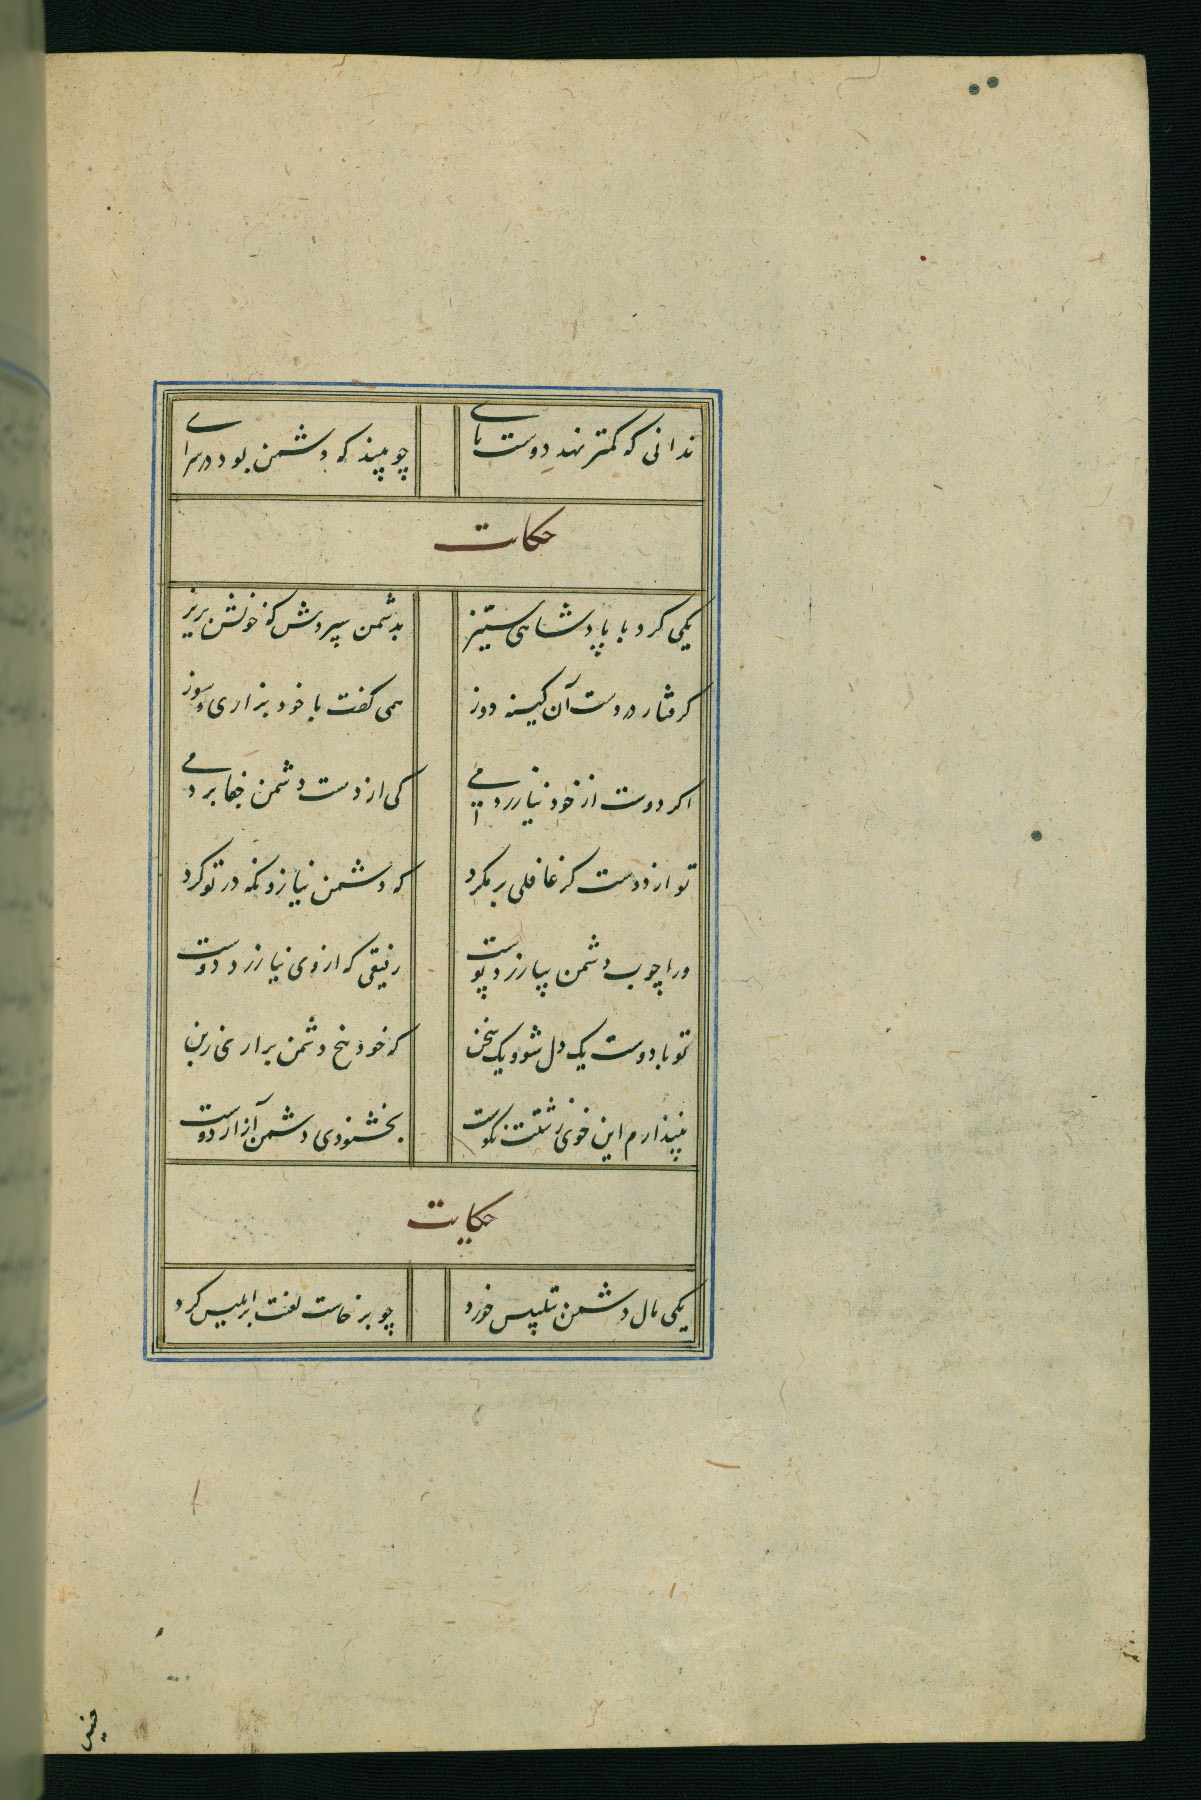 ندانی که کمتر نهد دوست پای چو بیند که دشمن بود در سرای
حکات
یکی کرد با پادشاهی ستیز بدشمن سپردش که خونش بریز
کرفتار در دست آن کینه دوز همی کفت با خود بزاری و سوز
اکر دوست از خود نیازردمی کی از دست دشمن جفا بردمی
تو از دوست کر غافلی بر مکرد که دشمن نیارد نکه در تو کرد
ورا چوب دشمن بیازرد پوست رفیقی که از وی نیازرد دوست
تو با دوست یک دل شو و یک سخن که خود بیخ دشمن براری ز بن
نپندارم این خوی زشتت نکوست بخشنودی دشمن آزار دوست
حکایت
یکی مال دشمن بتلبیس خورد چو برخاست لعنت بر ابلیس کرد
چنین